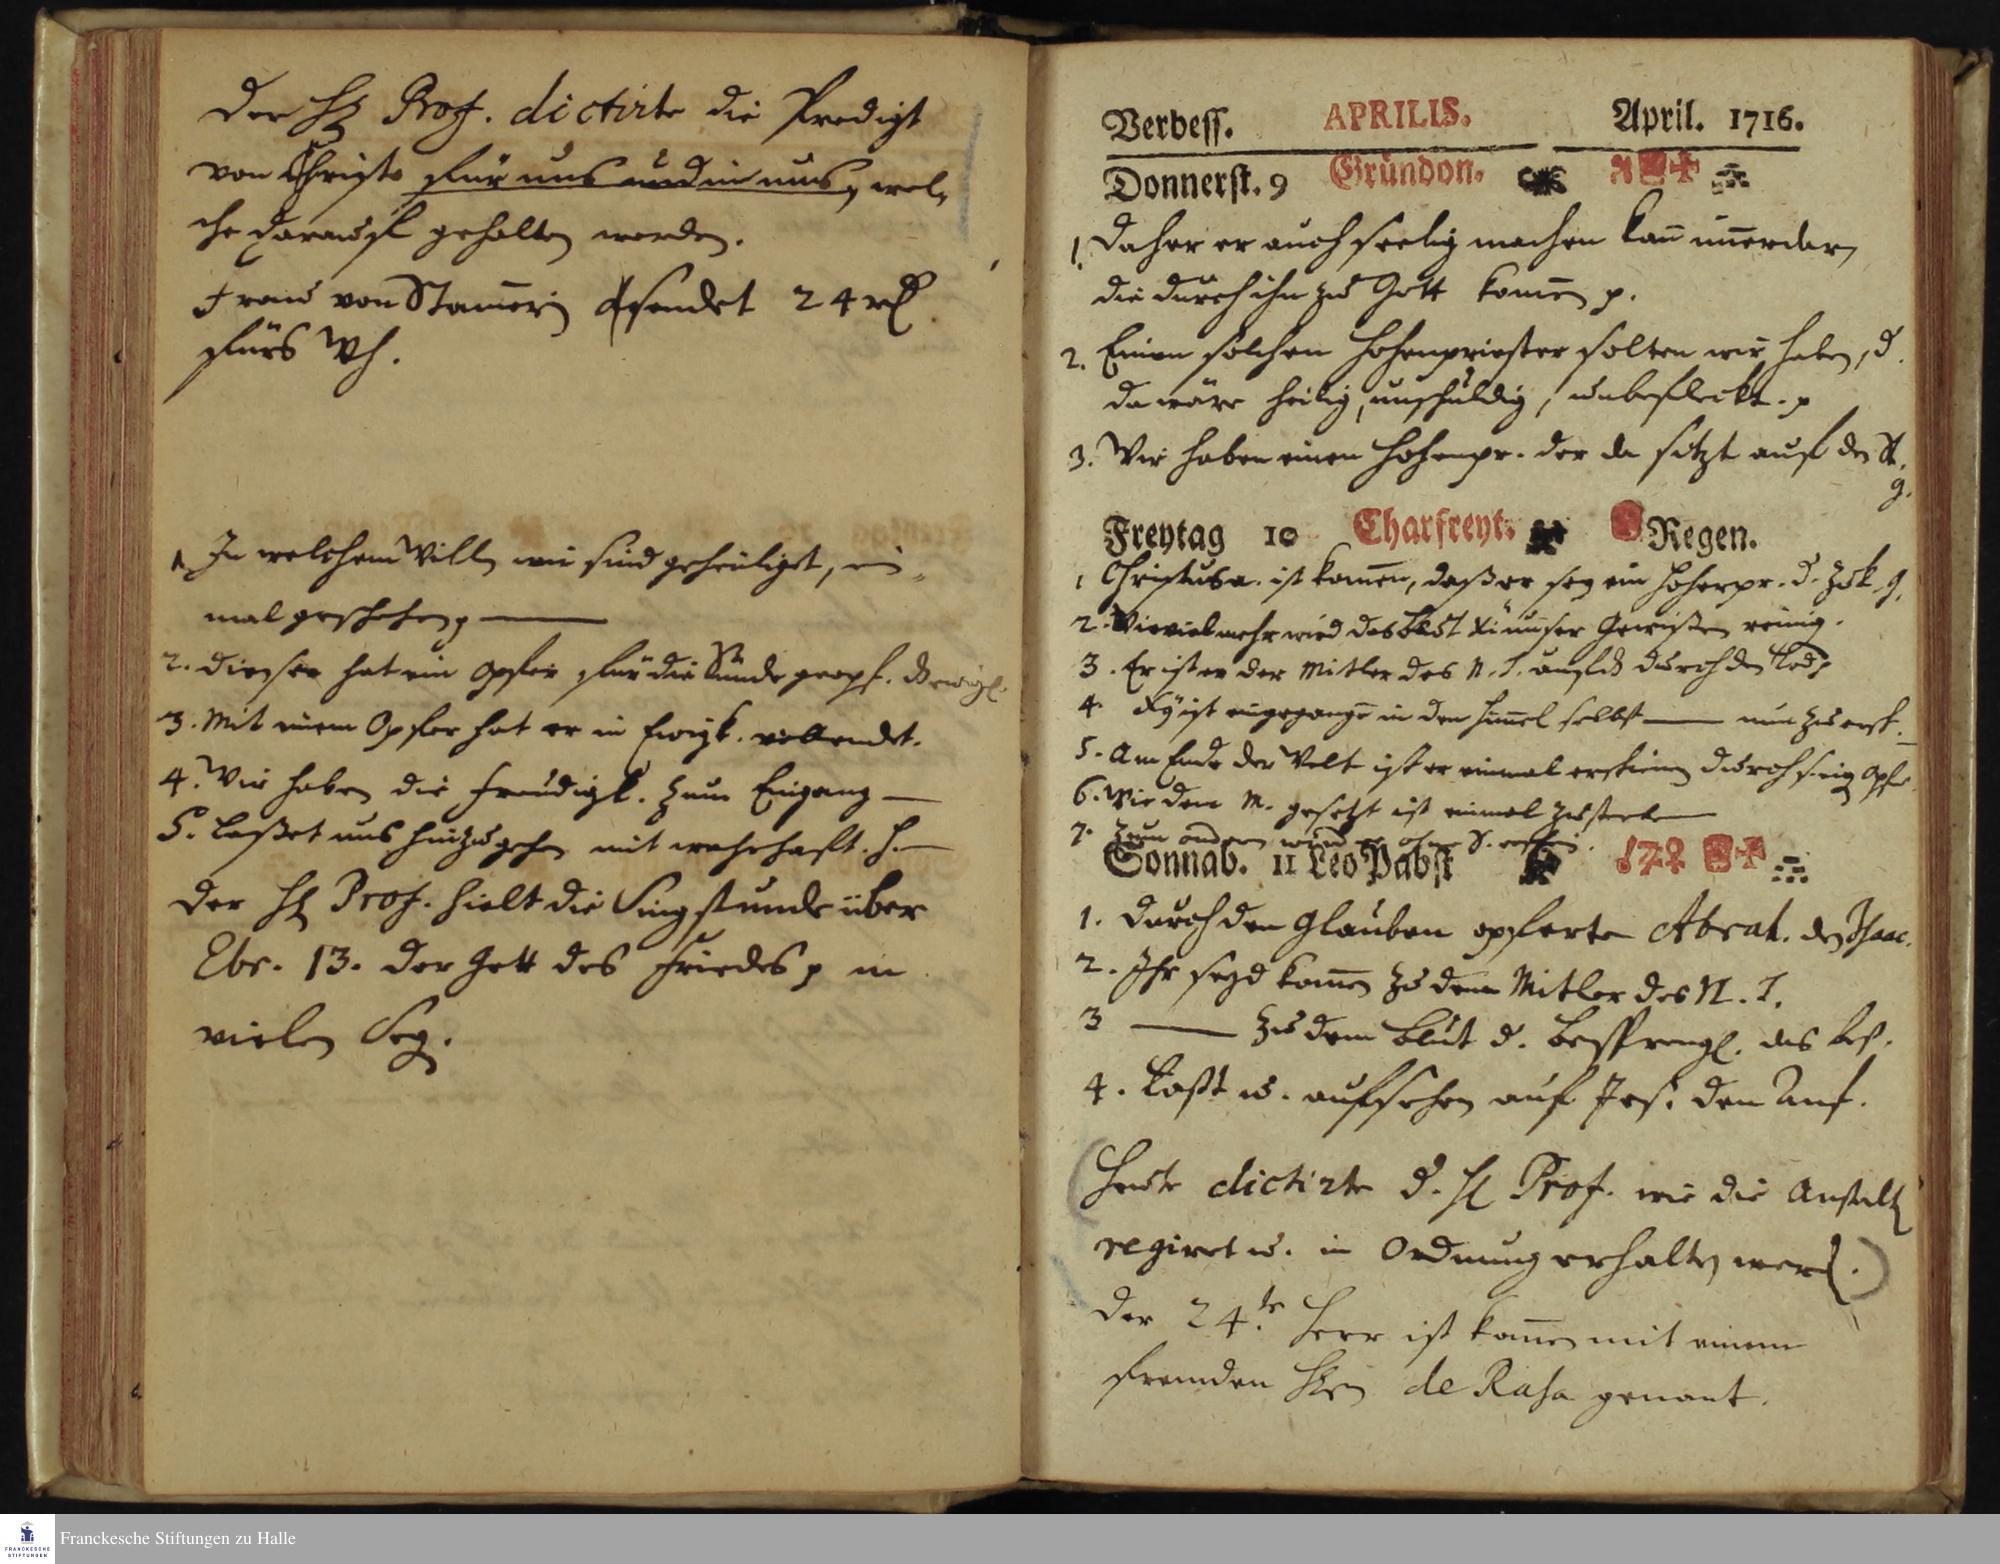 Der H. Prof. dictirte die Predigt
von Christo für uns und in uns, wel-
che darauf gehalten worden.
Frau von Stamerin sendet 24 rl
fürs Wh.
1 In welchem Willen wir sind geheiliget, ein-
mal geschehen p
2. dieser hat ein Opfer für die Sünde geopf. d. ewigl.
3. Mit einem Opfer hat er in Ewigk. vollendet.
4. Wir haben die Freudigk. zum Eingang —
5. Laßet uns hinzugehen mit wahrhaft. H. —
Der H. Prof. hielt die Singstunde über
Ebr. 13. der Gott des Friedes p in
vielen Seg.
Verbess. APRILIS. April. 1716.
Donnerst. 9 Gründon.
1. Daher er auch seelig machen kan im̃erdar,
die durch ihn zu Gott kom̃en p.
2. Einen solchen Hohenpriester solten wir haben, d.
da wäre heilig, unschuldig, unbefleckt. p
3. Wir haben einen Hohenpr. der da sitzt auf den St.
g.
Freytag 10 Charfreyt. Regen.
1 Christus a. ist kom̃en, daß er sey ein Hoherpr. d. zuk. g.
2. Wievielmehr wird das Blut Xi unser Gewißen reinig.
3. Er ist er der Mitler des N. T. aufds durch den Tod p
4. X9 ist eingegangẽ in den Him̃el selbst — nun zu ersch. —
5. Am Ende der Welt ist er einmal erschienen durch s. eig Opfer
6. Wie den M. gesetzt ist einmal zu sterben —
7. Zum andern wird er ohne S. erschein.
Sonnab. 11 Leo Pabst
1. Durch den Glauben opferte Abrah. den Isaac.
2. Ihr seyd kom̃en zu dem Mitler des N. T.
3 — zu dem Blut d. Besprengl. das bes.
4. Laßt u. aufsehen auf Jes. den Anf.
(Heute dictirte d. H. Prof. wie die Anstalten
regiret u. in Ordnung erhalten werd.)
Der 24.te Herr ist kom̃en mit einem
fremden Hrn de Rasa genant.
Franckesche Stiftungen zu Halle
FRANCKESCHE
STIFTUNGEN